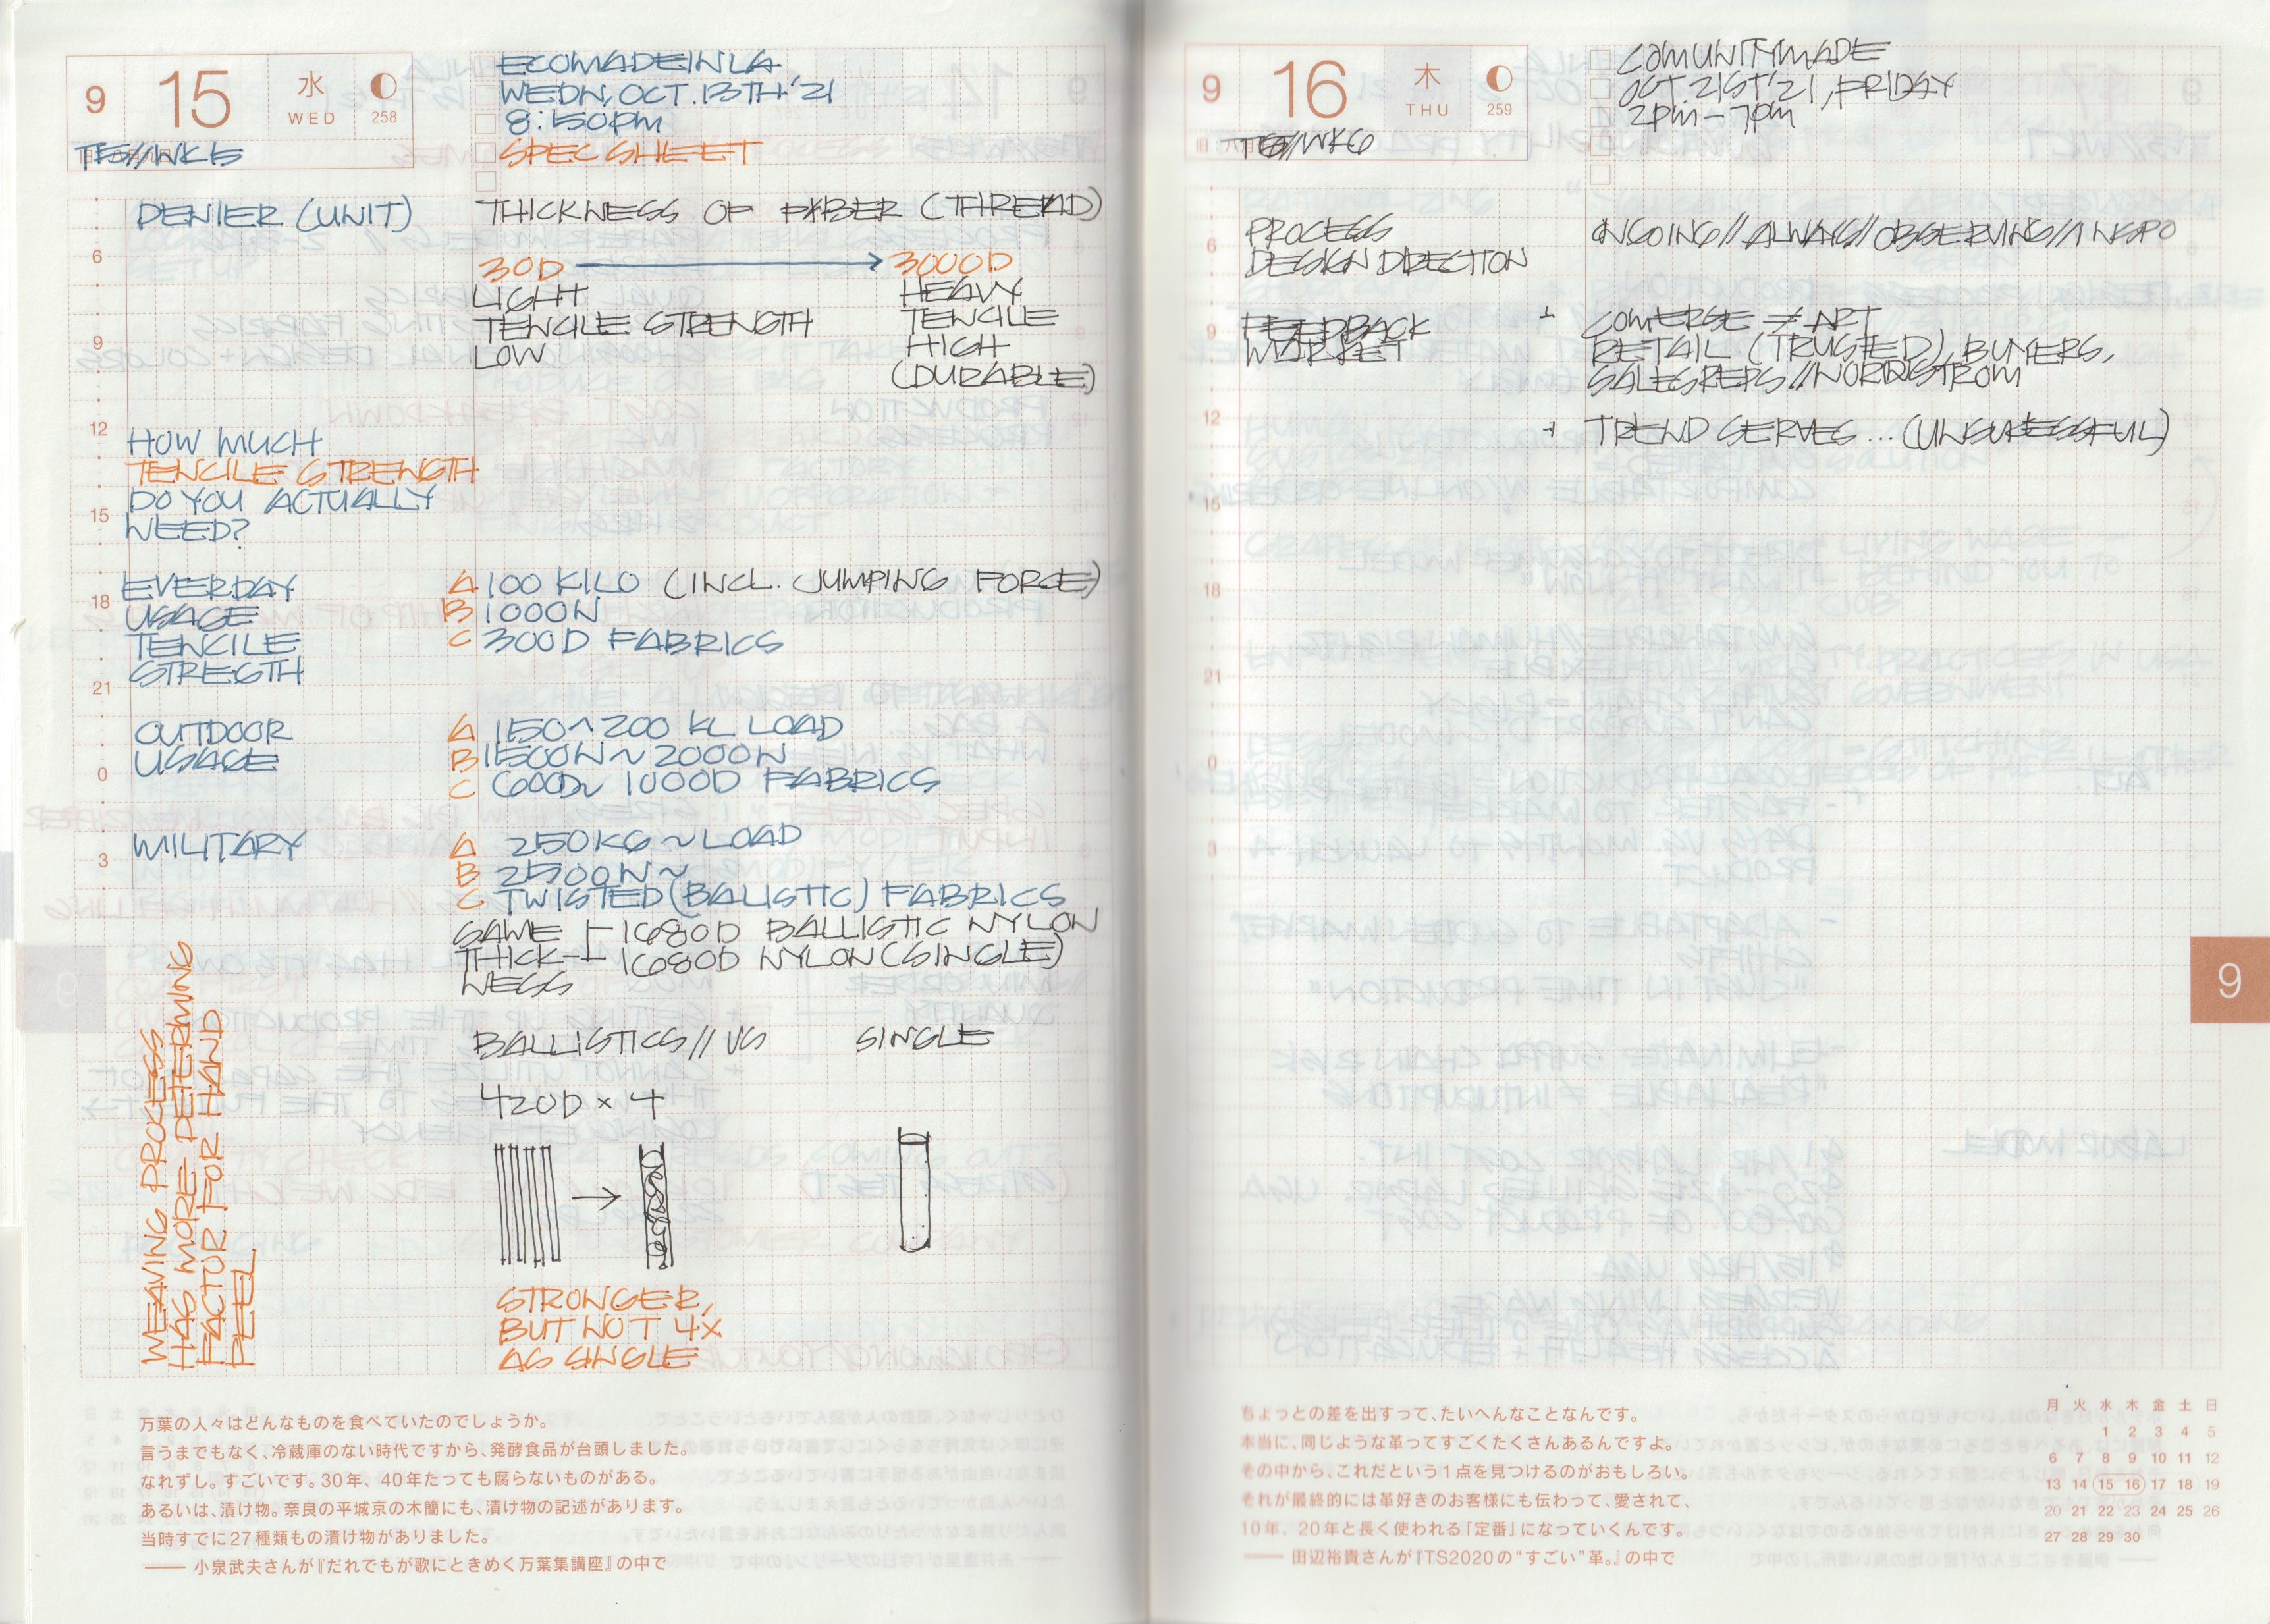 9 15 水 WED 258
TFS//WK5
ECOMADEINLA
WEDN, OCT. 13TH '21
8:50PM
SPEC SHEET
DENIER (UNIT) THICKNESS OF FIBER (THREAD)
30D 3000D
LIGHT HEAVY
TENCILE STRENGTH TENCILE
LOW HIGH
(DURABLE)
HOW MUCH
TENCILE STRENGTH
DO YOU ACTUALLY
NEED?
EVERDAY A 100 KILO (INCL. JUMPING FORCE)
USAGE B 1000N
TENCILE C 300D FABRICS
STREGTH
OUTDOOR A 150~200 KL LOAD
USAGE B 1500N~2000N
C 600D~1000D FABRICS
MILITARY A 250KG~LOAD
B 2500N~
C TWISTED (BALISTIC) FABRICS
SAME 1680D BALLISTIC NYLON
THICK- 1680D NYLON (SINGLE)
NESS
BALLISTICS // VS SINGLE
420D × 4
STRONGER,
BUT NOT 4X
AS SINGLE
WEAVING PROCESS
HAS MORE DETERMING
FACTOR FOR HAND
FEEL
6
9
12
15
18
21
0
3
万葉の人々はどんなものを食べていたのでしょうか。
言うまでもなく、冷蔵庫のない時代ですから、発酵食品が台頭しました。
なれずし。すごいです。30年、40年たっても腐らないものがある。
あるいは、漬け物。奈良の平城京の木簡にも、漬け物の記述があります。
当時すでに27種類もの漬け物がありました。
—— 小泉武夫さんが『だれでもが歌にときめく万葉集講座』の中で
9 16 木 THU 259
TFS//WK6
COMUNITYMADE
OCT. 21ST '21, FRIDAY
2PM - 7PM
PROCESS ONGOING // ALWAYS // OBSERVING // INSPO
DESIGN DIRECTION
FEEDBACK COMERGE ≠ ART
MARKET RETAIL (TRUSTED) BUYERS,
SALESREPS // NORDSTROM
+ TREND SERVES ... (UNSUCESSFUL)
6
9
12
15
18
21
0
3
9
ちょっとの差を出すって、たいへんなことなんです。
本当に、同じような革ってすごくたくさんあるんですよ。
その中から、これだという1点を見つけるのがおもしろい。
それが最終的には革好きのお客様にも伝わって、愛されて、
10年、20年と長く使われる「定番」になっていくんです。
—— 田辺裕貴さんが『TS2020の“すごい”革。』の中で
月 火 水 木 金 土 日
1 2 3 4 5
6 7 8 9 10 11 12
13 14 15 16 17 18 19
20 21 22 23 24 25 26
27 28 29 30